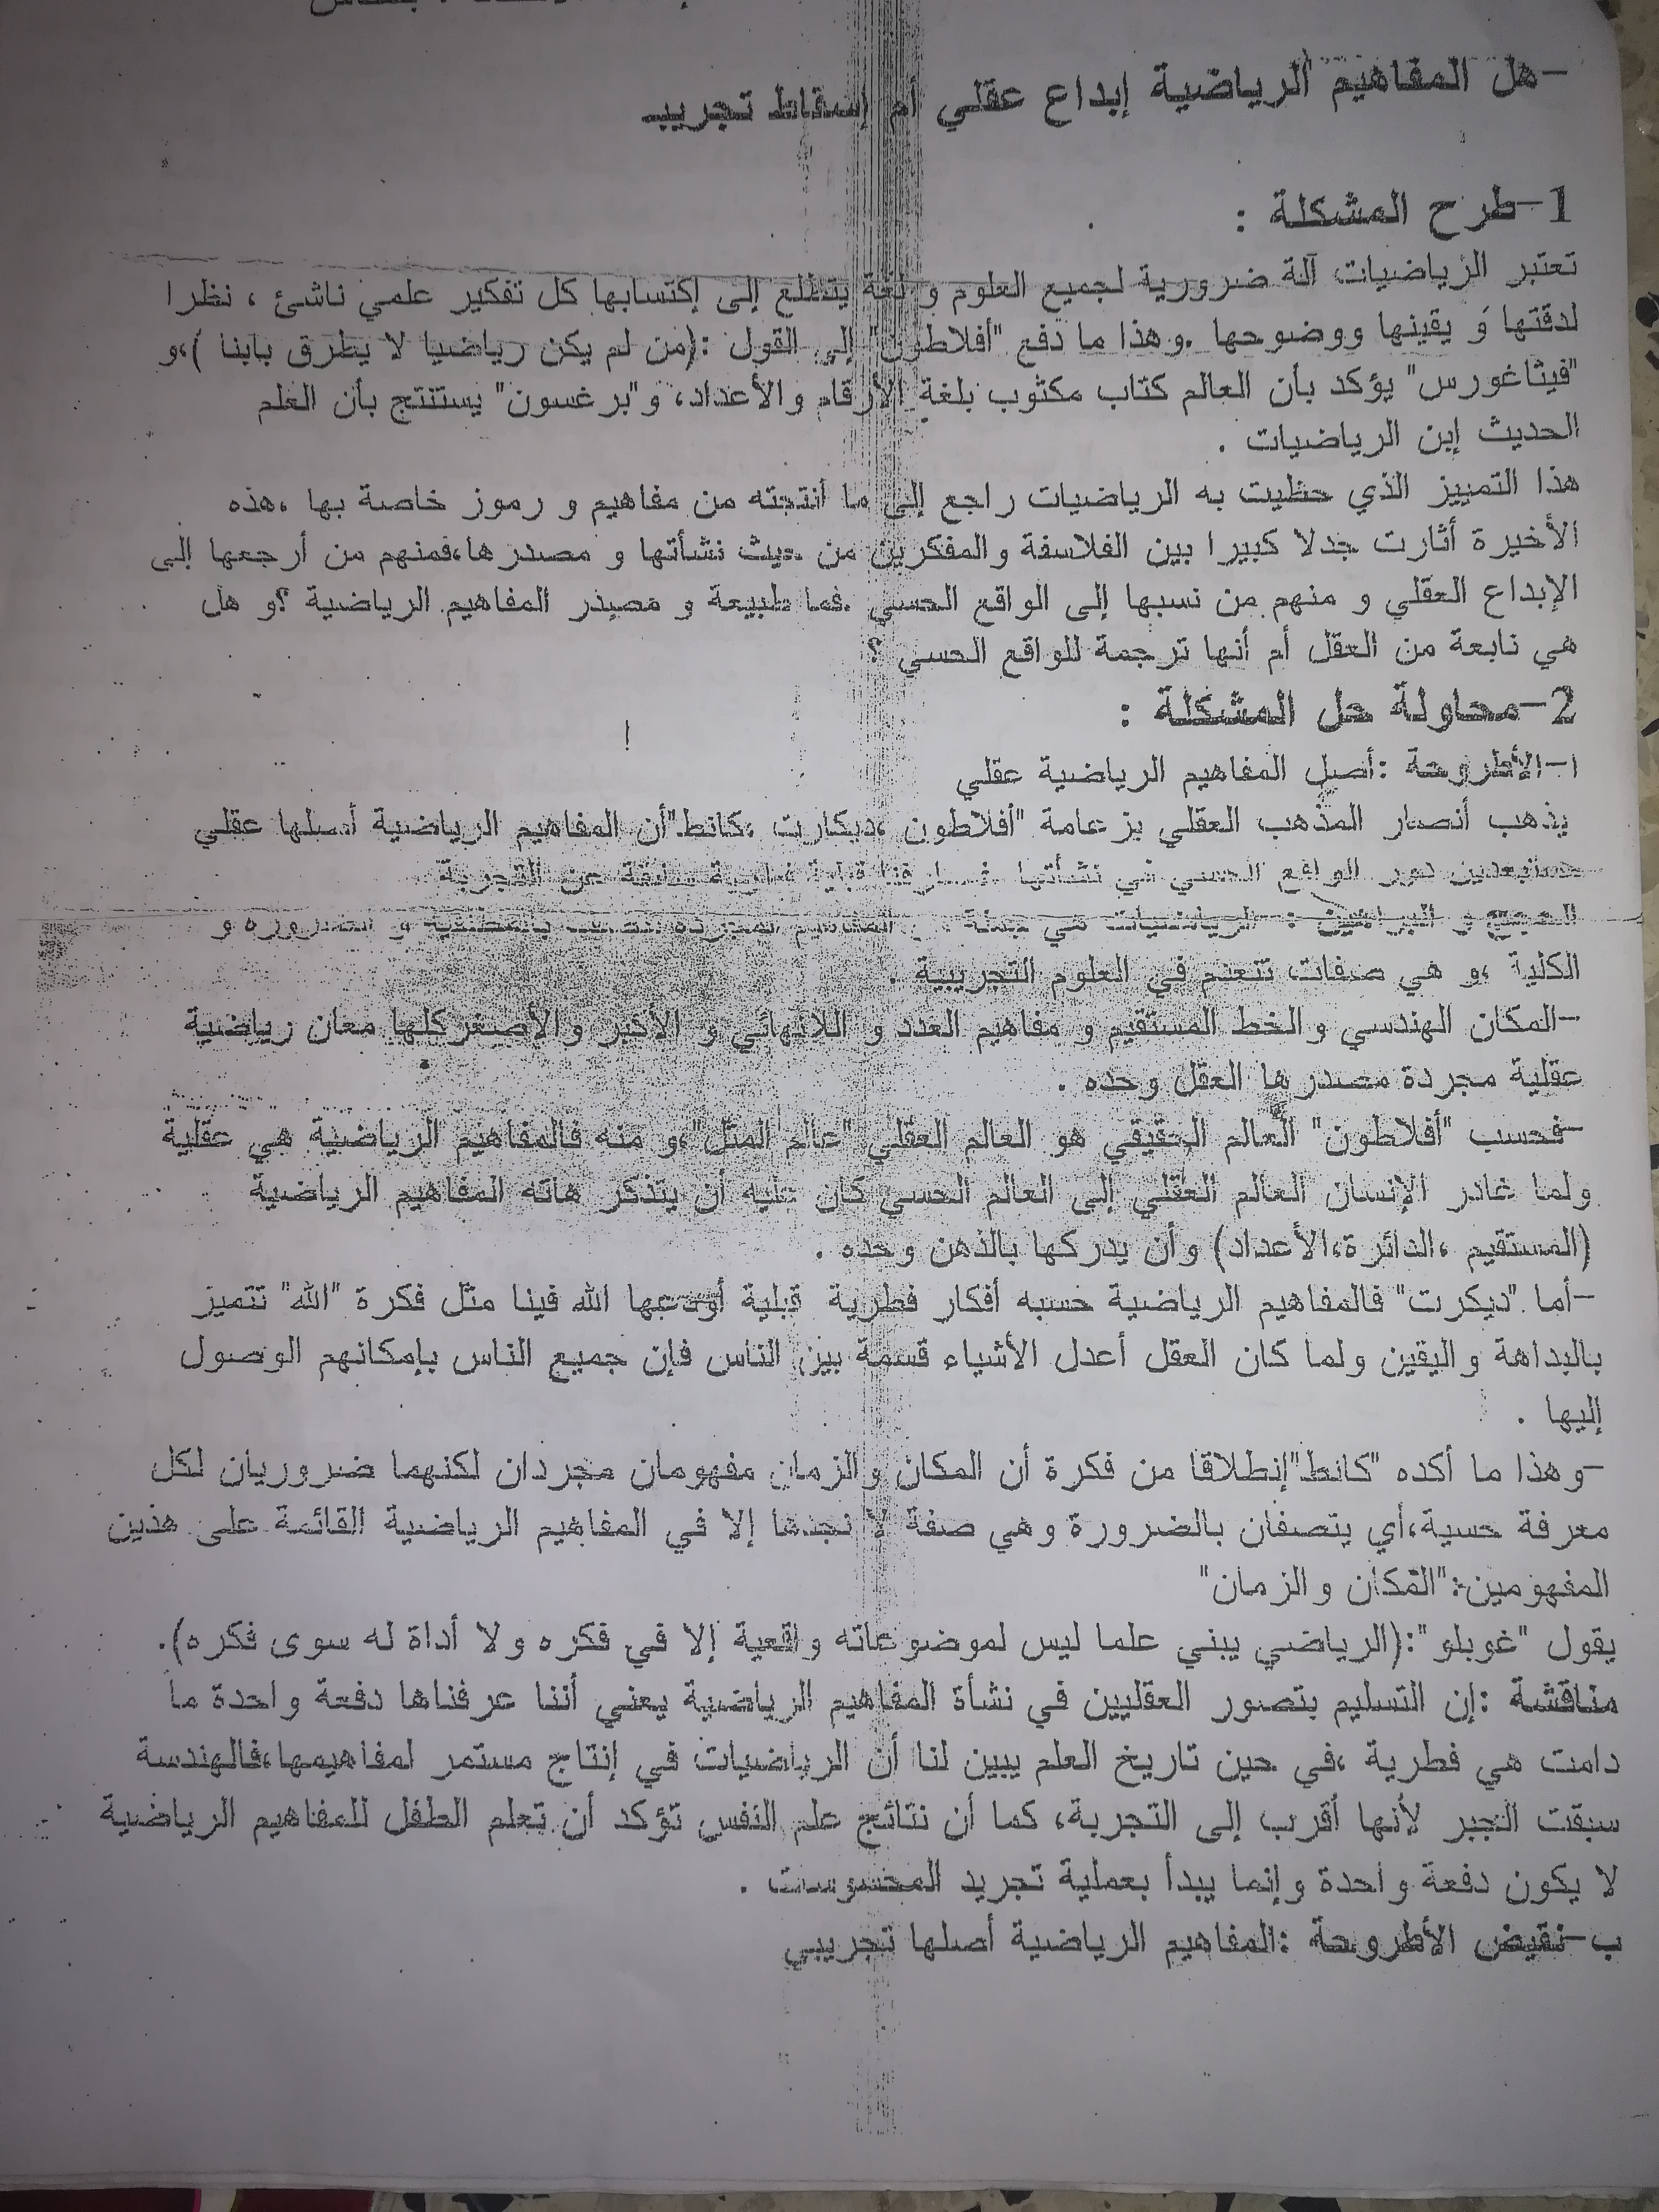 -هل المفاهيم الرياضية إبداع عقلي أم إسقاط تجريب
1-طرح المشكلة :
تعتبر الرياضيات آلة ضرورية لجميع العلوم و لغة يتطلع إلى إكتسابها كل تفكير علمي ناشئ ، نظرا
لدقتها و يقينها ووضوحها .وهذا ما دفع "أفلاطون" إلى القول :(من لم يكن رياضيا لا يطرق بابنا )،و
"فيثاغورس" يؤكد بأن العالم كتاب مكتوب بلغة الأرقام والأعداد، و"برغسون" يستنتج بأن العلم
الحديث إبن الرياضيات .
هذا التمييز الذي حظيت به الرياضيات راجع إلى ما أنتجته من مفاهيم و رموز خاصة بها ،هذه
الأخيرة أثارت جدلا كبيرا بين الفلاسفة والمفكرين من حيث نشأتها و مصدرها،فمنهم من أرجعها إلى
الإبداع العقلي و منهم من نسبها إلى الواقع الحسي .فما طبيعة و مصدر المفاهيم الرياضية ؟و هل
هي نابعة من العقل أم أنها ترجمة للواقع الحسي ؟
2-محاولة حل المشكلة :
ا-الأطروحة :أصل المفاهيم الرياضية عقلي
يذهب أنصار المذهب العقلي بزعامة "أفلاطون ،ديكارت ،كانط"أن المفاهيم الرياضية أصلها عقلي
دور الواقع الحسي في نشأتها قبلية سابقة عن التجربة
الحجج و البراهين : الرياضيات هي جملة من المفاهيم المجردة و الضرورة و
الكلية ،و هي صفات تنعدم في العلوم التجريبية .
-المكان الهندسي والخط المستقيم و مفاهيم العدد و اللانهائي و الأكبر والأصغر كلها معان رياضية
عقلية مجردة مصدرها العقل وحده .
-فحسب "أفلاطون" العالم الحقيقي هو العالم العقلي "عالم المثل"،و منه فالمفاهيم الرياضية هي عقلية
ولما غادر الإنسان العالم العقلي إلى العالم الحسي كان عليه أن يتذكر هاته المفاهيم الرياضية
(المستقيم ،الدائرة،الأعداد) وأن يدركها بالذهن وحده .
-أما "ديكرت" فالمفاهيم الرياضية حسبه أفكار فطرية قبلية أودعها الله فينا مثل فكرة "الله" تتميز
بالبداهة واليقين ولما كان العقل أعدل الأشياء قسمة بين الناس فإن جميع الناس بإمكانهم الوصول
إليها .
-وهذا ما أكده "كانط"إنطلاقا من فكرة أن المكان والزمان مفهومان مجردان لكنهما ضروريان لكل
معرفة حسية،أي يتصفان بالضرورة وهي صفة لا نجدها إلا في المفاهيم الرياضية القائمة على هذين
المفهومين:"المكان والزمان"
يقول "غوبلو ":(الرياضي يبني علما ليس لموضوعاته واقعية إلا في فكره ولا أداة له سوى فكره).
مناقشة :إن التسليم بتصور العقليين في نشأة المفاهيم الرياضية يعني أننا عرفناها دفعة واحدة ما
دامت هي فطرية ،في حين تاريخ العلم يبين لنا أن الرياضيات في إنتاج مستمر لمفاهيمها،فالهندسة
سبقت الجبر لأنها أقرب إلى التجربة، كما أن نتائج علم النفس تؤكد أن تعلم الطفل للمفاهيم الرياضية
لا يكون دفعة واحدة وإنما يبدأ بعملية تجريد المحسوسات .
ب-نقيض الأطروحة :المفاهيم الرياضية أصلها تجريبي